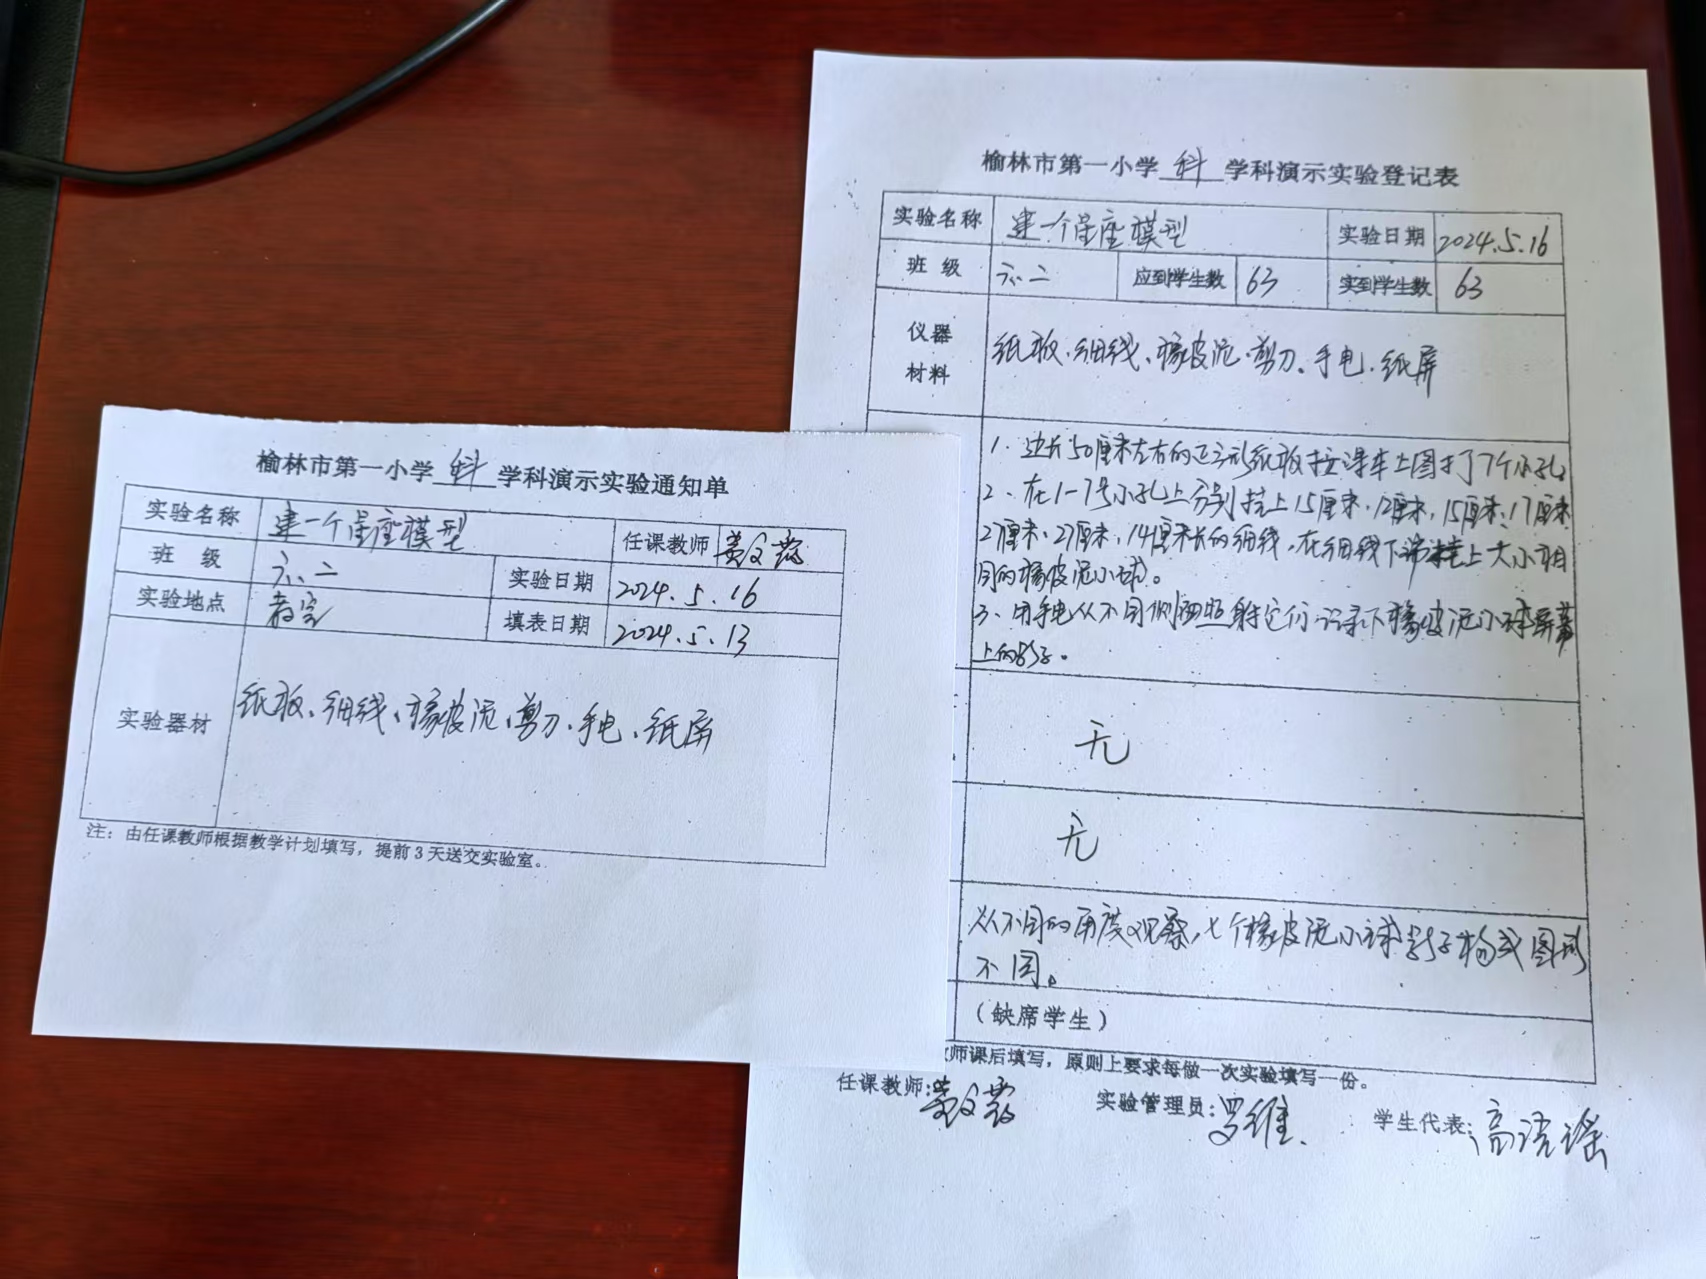 榆林市第一小学 科 学科演示实验通知单
实验名称 建一个星座模型 任课教师
班 级 六、二 实验日期 2024.5.16
实验地点 教室 填表日期 2024.5.13
实验器材 纸板、细线、橡皮泥、剪刀、手电、纸屏
注：由任课教师根据教学计划填写，提前3天送交实验室。
榆林市第一小学 科 学科演示实验登记表
实验名称 建一个星座模型 实验日期 2024.5.16
班 级 六、二 应到学生数 63 实到学生数 63
仪器
材料
纸板、细线、橡皮泥、剪刀、手电、纸屏
1、边长50厘米左右的正方形纸板按课本上图打了7个小孔
2、在1-7号小孔上分别挂上15厘米、12厘米、15厘米、17厘米
27厘米、27厘米、14厘米长的细线，在细线下端挂上大小相
同的橡皮泥小球。
3、用手电从不同侧面照射它们记录下橡皮泥小球屏幕
上的影子。
无
无
从不同的角度观察，七个橡皮泥小球影子构成图形
不同。
（缺席学生）
师课后填写，原则上要求每做一次实验填写一份。
任课教师: 实验管理员: 罗维 学生代表: 高